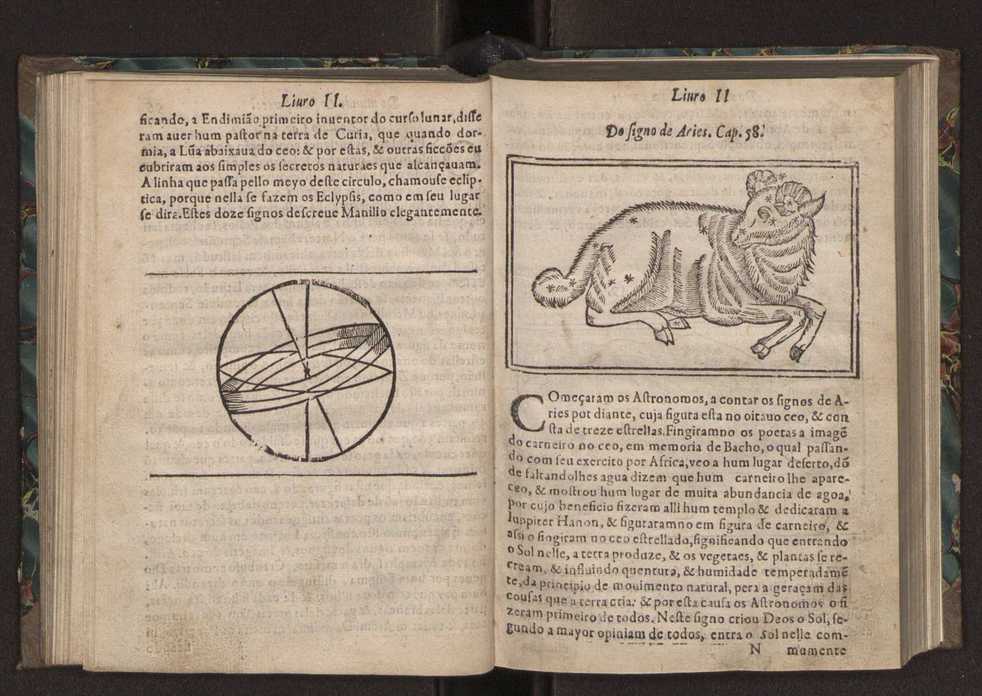 Liuro II.
ficando, a Endimião primeiro inuentor do curso lunar, disse
ram auer hum pastor na terra de Curia, que quando dor-
mia, a Lũa abaixaua do ceo: & por estas, & outras ficcões eu
cubriram aos simples os secretos naturaes que alcançauam.
A linha que passa pello meyo deste circulo, chamouse eclip-
tica, porque nella se fazem os Eclypsis, como em seu lugar
se dira. Estes doze signos descreue Manilio elegantemente.
Liuro II
Do signo de Aries. Cap. 58.
COmeçaram os Astronomos, a contar os signos de A-
ries por diante, cuja figura esta no oitauo ceo, & con
sta de treze estrellas. Fingiramno os poetas a imagẽ
do carneiro no ceo, em memoria de Bacho, o qual passan-
do com seu exercito por Africa, veo a hum lugar deserto, dõ
de faltandolhes agua dizem que hum carneiro lhe apare-
ceo, & mostrou hum lugar de muita abundancia de agoa,
por cujo beneficio fizeram alli hum templo & dedicaram a
Iuppiter Hanon, & figuraramno em figura de carneiro, &
assi o fingiram no ceo estrellado, significando que entrando
o Sol nelle, a terra produze, & os vegetaes, & plantas se re-
cream, & influindo quentura, & humidade temperadamẽ
te, da principio de mouimento natural, pera a geraçam das
cousas que a terra cria: & por esta causa os Astronomos o fi
zeram primeiro de todos. Neste signo criou Deos o Sol, se-
gundo a mayor opiniam de todos, entra o Sol nelle com-
N mumente